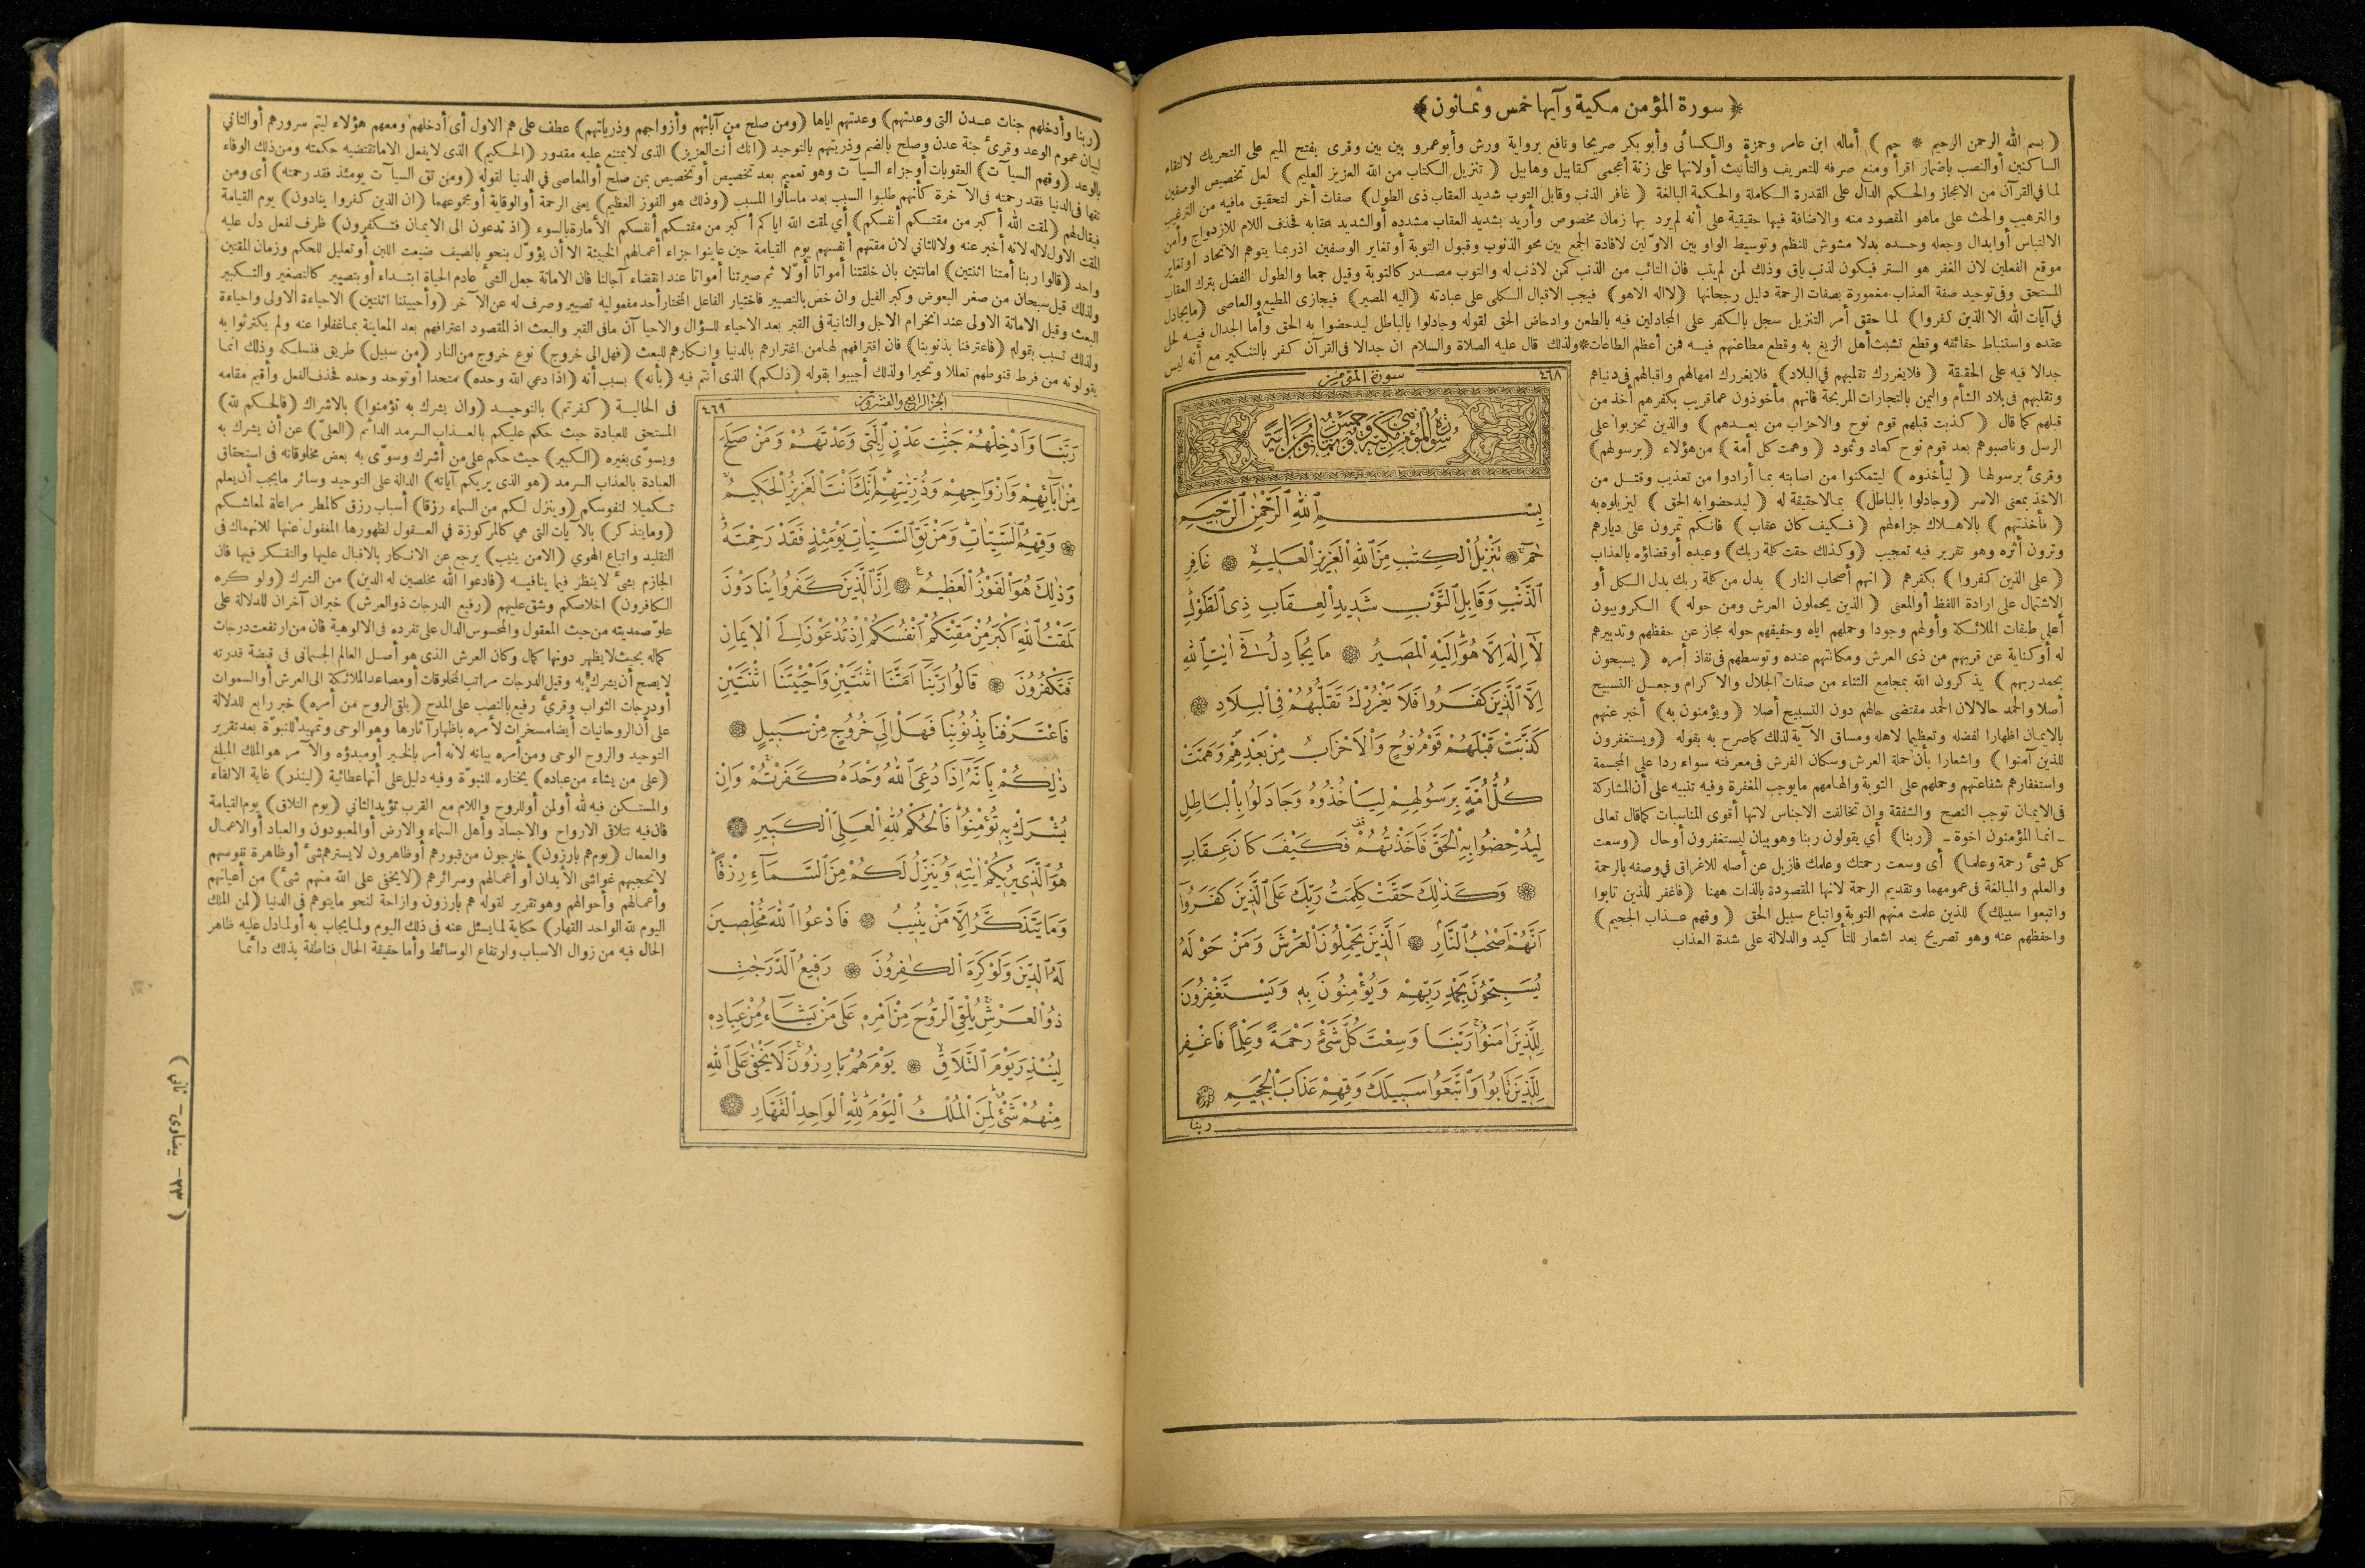 ﴿ سورة المؤمن مكية وآيها خمس وثمانون ﴾
﴿ بسم الله الرحمن الرحيم * حم ﴾ أماله ابن عامر وحمزة والكسائى وأبو بكر صريحا ونافع برواية ورش وأبو عمرو بين بين وقرى بفتح الميم على التحريك لالتقاء
الساكنين أوالنصب باضمار اقرأ ومنع صرفه للتعريف والتأنيث أولانها على زنة أعجمى كقابيل وهابيل ﴿ تنزيل الكتاب من الله العزيز العليم ﴾ لعل تخصيص الوصفين
لما فى القرآن من الاعجاز والحكم الدال على القدرة الكاملة والحكمة البالغة ﴿ غافر الذنب وقابل التوب شديد العقاب ذى الطول ﴾ صفات أخر لتحقيق مافيه من الترغيب
والترهيب والحث على ماهو المقصود منه والاضافة فيها حقيقية على أنه لم يرد بها زمان مخصوص وأريد بشديد العقاب مشدده أوالشديد عقابه فحذف اللام للازدواج وأمن
الالتباس أوابدال وجعله وحده بدلا مشوش للنظم وتوسيط الواو بين الاولين لافادة الجمع بين محو الذنوب وقبول التوبة أوتغاير الوصفين اذربما يتوهم الاتحاد أوتغاير
موقع الفعلين لان الغفر هو الستر فيكون لذنب باق وذلك لمن لم يتب فان التائب من الذنب كمن لاذنب له والتوب مصدر كالتوبة وقيل جمعا والطول الفضل بترك العقاب
المستحق وفى توحيد صفة العذاب مغمورة بصفات الرحمة دليل رجحانها ﴿لااله الاهو﴾ فيجب الاقبال الكلى على عبادته ﴿اليه المصير﴾ فيجازى المطيع والعاصى ﴿مايجادل
فى آيات الله الا الذين كفروا﴾ لما حقق أمر التنزيل سجل بالكفر على المجادلين فيه بالطعن وادحاض الحق لقوله وجادلوا بالباطل ليدحضوا به الحق وأما الجدال فيه لحل
عقده واستنباط حقائقه وقطع تشبث أهل الزيغ به وقطع مطاعنهم فيه فمن أعظم الطاعات*ولذلك قال عليه الصلاة والسلام ان جدالا فى القرآن كفر بالتنكير مع أنه ليس
جدالا فيه على الحقيقة ﴿ فلايغررك تقلبهم فى البلاد﴾ فلايغررك امهالهم واقبالهم فى دنياهم
وتقلبهم فى بلاد الشأم واليمن بالتجارات المربحة فانهم مأخوذون عماقريب بكفرهم أخذ من
قبلهم كما قال ﴿ كذبت قبلهم قوم نوح والاحزاب من بعدهم ﴾ والذين تحزبوا على
الرسل وناصبوهم بعد قوم نوح كعاد وثمود ﴿ وهمت كل أمة ﴾ من هؤلاء ﴿برسولهم﴾
وقرئ برسولها ﴿ ليأخذوه ﴾ ليتمكنوا من اصابته بما أرادوا من تعذيب وقتل من
الاخذ بمعنى الاسر ﴿وجادلوا بالباطل﴾ بمالاحقيقة له ﴿ ليدحضوا به الحق ﴾ ليزيلوه به
﴿ فأخذتهم ﴾ بالاهلاك جزاءلهم ﴿ فكيف كان عقاب ﴾ فانكم تمرون على ديارهم
وترون أثره وهو تقرير فيه تعجيب ﴿وكذلك حقت كلمة ربك﴾ وعيده أوقضاؤه بالعذاب
﴿ على الذين كفروا ﴾ بكفرهم ﴿ انهم أصحاب النار ﴾ بدل من كلمة ربك بدل الكل أو
الاشتمال على ارادة اللفظ أوالمعنى ﴿ الذين يحملون العرش ومن حوله ﴾ الكروبيون
أعلى طبقات الملائكة وأولهم وجودا وحملهم اياه وحفيفهم حوله مجاز عن حفظهم وتدبيرهم
له أوكناية عن قربهم من ذى العرش ومكانتهم عنده وتوسطهم فى نفاذ أمره ﴿ يسبحون
بحمد ربهم ﴾ يذكرون الله بمجامع الثناء من صفات الجلال والاكرام وجعل التسبيح
أصلا والحمد حالالان الحمد مقتضى حالهم دون التسبيح أصلا ﴿ويؤمنون به﴾ أخبر عنهم
بالايمان اظهارا لفضله وتعظيما لاهله ومساق الآية لذلك كماصرح به بقوله ﴿ويستغفرون
للذين آمنوا﴾ واشعارا بأن حملة العرش وسكان الفرش فى معرفته سواء ردا على المجسمة
واستغفارهم شفاعتهم وحملهم على التوبة والهامهم مايوجب المغفرة وفيه تنبيه على أن المشاركة
فى الايمان توجب النصح والشفقة وان تخالفت الاجناس لانها أقوى المناسبات كماقال تعالى
ـ انما المؤمنون اخوة ـ ﴿ربنا﴾ أى يقولون ربنا وهو بيان ليستغفرون أوحال ﴿وسعت
كل شئ رحمة وعلما﴾ أى وسعت رحمتك وعلمك فازيل عن أصله للاغراق فى وصفه بالرحمة
والعلم والمبالغة فى عمومهما وتقديم الرحمة لانها المقصودة بالذات ههنا ﴿فاغفر للذين تابوا
واتبعوا سبيلك﴾ للذين علمت منهم التوبة واتباع سبيل الحق ﴿ وقهم عذاب الجحيم ﴾
واحفظهم عنه وهو تصريح بعد اشعار للتأكيد والدلالة على شدة العذاب
٤٦٨ سورة المؤمن
سُورَةُ الْمُؤْمِنِ مَكِّيَّةٌ وَهِيَ خَمْسٌ وَثَمَانُونَ اٰيَةً
بِسْمِ اللّٰهِ الرَّحْمٰنِ الرَّحِيمِ
حٰمٓ * تَنْزِيلُ الْكِتَابِ مِنَ اللّٰهِ الْعَزِيزِ الْعَلِيمِ * غَافِرِ
الذَّنْبِ وَقَابِلِ التَّوْبِ شَدِيدِ الْعِقَابِ ذِى الطَّوْلِ
لَٓا اِلٰهَ اِلَّا هُوَ اِلَيْهِ الْمَصِيرُ * مَا يُجَادِلُ فٖٓى اٰيَاتِ اللّٰهِ
اِلَّا الَّذِينَ كَفَرُوا فَلَا يَغْرُرْكَ تَقَلُّبُهُمْ فِى الْبِلَادِ *
كَذَّبَتْ قَبْلَهُمْ قَوْمُ نُوحٍ وَالْاَحْزَابُ مِنْ بَعْدِهِمْ وَهَمَّتْ
كُلُّ اُمَّةٍ بِرَسُولِهِمْ لِيَاْخُذُوهُ وَجَادَلُوا بِالْبَاطِلِ
لِيُدْحِضُوا بِهِ الْحَقَّ فَاَخَذْتُهُمْ فَكَيْفَ كَانَ عِقَابِ
* وَكَذٰلِكَ حَقَّتْ كَلِمَتُ رَبِّكَ عَلَى الَّذِينَ كَفَرُٓوا
اَنَّهُمْ اَصْحٰبُ النَّارِ * اَلَّذِينَ يَحْمِلُونَ الْعَرْشَ وَمَنْ حَوْلَهُ
يُسَبِّحُونَ بِحَمْدِ رَبِّهِمْ وَيُؤْمِنُونَ بِهٖ وَيَسْتَغْفِرُونَ
لِلَّذِينَ اٰمَنُوا رَبَّنَا وَسِعْتَ كُلَّ شَىْءٍ رَحْمَةً وَعِلْمًا فَاغْفِرْ
لِلَّذِينَ تَابُوا وَاتَّبَعُوا سَبِيلَكَ وَقِهِمْ عَذَابَ الْجَحِيمِ *
ربنا
﴿ربنا وأدخلهم جنات عدن التى وعدتهم﴾ وعدتهم اياها ﴿ومن صلح من آبائهم وأزواجهم وذرياتهم﴾ عطف على هم الاول أى أدخلهم ومعهم هؤلاء ليتم سرورهم أوالثانى
لبيان عموم الوعد وقرئ جنة عدن وصلح بالضم وذريتهم بالتوحيد ﴿انك أنت العزيز﴾ الذى لايمتنع عليه مقدور ﴿الحكيم﴾ الذى لايفعل الاماتقتضيه حكمته ومن ذلك الوفاء
بالوعد ﴿وقهم السيآت﴾ العقوبات أوجزاء السيآت وهو تعميم بعد تخصيص أوتخصيص بمن صلح أوالمعاصى فى الدنيا لقوله ﴿ومن تق السيآت يومئذ فقد رحمته﴾ أى ومن
تقها فى الدنيا فقد رحمته فى الآخرة كأنهم طلبوا السبب بعد ماسألوا المسبب ﴿وذلك هو الفوز العظيم﴾ يعنى الرحمة أوالوقاية أومجموعهما ﴿ان الذين كفروا ينادون﴾ يوم القيامة
فيقال لهم ﴿لمقت الله أكبر من مقتكم أنفسكم﴾ أى لمقت الله اياكم أكبر من مقتكم أنفسكم الأمارة بالسوء ﴿اذ تدعون الى الايمان فتكفرون﴾ ظرف لفعل دل عليه
المقت الأول لاله لانه أخبر عنه ولاللثانى لان مقتهم أنفسهم يوم القيامة حين عاينوا جزاء أعمالهم الخبيثة الا أن يؤول بنحو بالصيف ضيعت اللبن أوتعليل للحكم وزمان المقتين
واحد ﴿قالوا ربنا أمتنا اثنتين﴾ اماتتين بان خلقتنا أمواتا أولا ثم صيرتنا أمواتا عند انقضاء آجالنا فان الاماتة جعل الشئ عادم الحياة ابتداء أوبتصيير كالتصغير والتكبير
ولذلك قيل سبحان من صغر البعوض وكبر الفيل وان خص بالتصيير فاختيار الفاعل المختار أحد مفعوليه تصيير وصرف له عن الآخر ﴿وأحييتنا اثنتين﴾ الاحياءة الاولى واحياءة
البعث وقيل الاماتة الاولى عند انخرام الاجل والثانية فى القبر بعد الاحياء للسؤال والاحيا آن مافى القبر والبعث اذ المقصود اعترافهم بعد المعاينة بماغفلوا عنه ولم يكترثوا به
ولذلك تسبب بقوله ﴿فاعترفنا بذنوبنا﴾ فان اقترافهم لهامن اغترارهم بالدنيا وانكارهم للبعث ﴿فهل الى خروج﴾ نوع خروج من النار ﴿من سبيل﴾ طريق فنسلكه وذلك انما
يقولونه من فرط قنوطهم تعللا وتحيرا ولذلك أجيبوا بقوله ﴿ذلكم﴾ الذى أنتم فيه ﴿بأنه﴾ بسبب أنه ﴿اذا دعى الله وحده﴾ متحدا أوتوحد وحده فحذف الفعل وأقيم مقامه
فى الحالية ﴿كفرتم﴾ بالتوحيد ﴿وان يشرك به تؤمنوا﴾ بالاشراك ﴿فالحكم لله﴾
المستحق للعبادة حيث حكم عليكم بالعذاب السرمد الدائم ﴿العلى﴾ عن أن يشرك به
ويسوى بغيره ﴿الكبير﴾ حيث حكم على من أشرك وسوى به بعض مخلوقاته فى استحقاق
العبادة بالعذاب السرمد ﴿هو الذى يريكم آياته﴾ الدالة على التوحيد وسائر مايجب أن يعلم
تكميلا لنفوسكم ﴿وينزل لكم من السماء رزقا﴾ أسباب رزق كالمطر مراعاة لمعاشكم
﴿ومايتذكر﴾ بالآيات التى هى كالمركوزة فى العقول لظهورها المغفول عنها للانهماك فى
التقليد واتباع الهوى ﴿الامن ينيب﴾ يرجع عن الانكار بالاقبال عليها والتفكر فيها فان
الجازم بشئ لاينظر فيما ينافيه ﴿فادعوا الله مخلصين له الدين﴾ من الشرك ﴿ولو كره
الكافرون﴾ اخلاصكم وشق عليهم ﴿رفيع الدرجات ذوالعرش﴾ خبران آخران للدلالة على
علو صمديته من حيث المعقول والمحسوس الدال على تفرده فى الالوهية فان من ارتفعت درجات
كماله بحيث لايظهر دونها كمال وكان العرش الذى هو أصل العالم الجسمانى فى قبضة قدرته
لايصح أن يشرك به وقيل الدرجات مراتب المخلوقات أومصاعد الملائكة الى العرش أوالسموات
أودرجات الثواب وقرئ رفيع بالنصب على المدح ﴿يلقى الروح من أمره﴾ خبر رابع للدلالة
على أن الروحانيات أيضا مسخرات لأمره باظهار آثارها وهو الوحى وتمهيد للنبوة بعد تقرير
التوحيد والروح الوحى ومن أمره بيانه لانه أمر بالخير أومبدؤه والآمر هو الملك المبلغ
﴿على من يشاء من عباده﴾ يختاره للنبوة وفيه دليل على أنها عطائية ﴿لينذر﴾ غاية الالقاء
والمستكن فيه لله أولمن أوللروح واللام مع القرب تؤيد الثانى ﴿يوم التلاق﴾ يوم القيامة
فان فيه تتلاقى الارواح والاجساد وأهل السماء والارض أوالمعبودون والعباد أوالاعمال
والعمال ﴿يوم هم بارزون﴾ خارجون من قبورهم أوظاهرون لايسترهم شئ أوظاهرة نفوسهم
لاتحجبهم غواشى الأبدان أو أعمالهم وسرائرهم ﴿لايخفى على الله منهم شئ﴾ من أعيانهم
وأعمالهم وأحوالهم وهو تقرير لقوله هم بارزون وازاحة لنحو مايتوهم فى الدنيا ﴿لمن الملك
اليوم لله الواحد القهار﴾ حكاية لمايسئل عنه فى ذلك اليوم ولمايجاب به أولمادل عليه ظاهر
الحال فيه من زوال الاسباب وارتفاع الوسائط وأما حقيقة الحال فناطقة بذلك دائما
الجزء الرابع والعشرون ٤٦٩
رَبَّنَا وَاَدْخِلْهُمْ جَنَّاتِ عَدْنٍ الَّتِى وَعَدْتَهُمْ وَمَنْ صَلَحَ
مِنْ اٰبَٓائِهِمْ وَاَزْوَاجِهِمْ وَذُرِّيَّاتِهِمْ اِنَّكَ اَنْتَ الْعَزِيزُ الْحَكِيمُ
* وَقِهِمُ السَّيِّاٰتِ وَمَنْ تَقِ السَّيِّاٰتِ يَوْمَئِذٍ فَقَدْ رَحِمْتَهُ
وَذٰلِكَ هُوَ الْفَوْزُ الْعَظِيمُ * اِنَّ الَّذِينَ كَفَرُوا يُنَادَوْنَ
لَمَقْتُ اللّٰهِ اَكْبَرُ مِنْ مَقْتِكُمْ اَنْفُسَكُمْ اِذْ تُدْعَوْنَ اِلَى الْاِيمَانِ
فَتَكْفُرُونَ * قَالُوا رَبَّنَٓا اَمَتَّنَا اثْنَتَيْنِ وَاَحْيَيْتَنَا اثْنَتَيْنِ
فَاعْتَرَفْنَا بِذُنُوبِنَا فَهَلْ اِلٰى خُرُوجٍ مِنْ سَبِيلٍ *
ذٰلِكُمْ بِاَنَّهُٓ اِذَا دُعِىَ اللّٰهُ وَحْدَهُ كَفَرْتُمْ وَاِنْ
يُشْرَكْ بِهٖ تُؤْمِنُوا فَالْحُكْمُ لِلّٰهِ الْعَلِىِّ الْكَبِيرِ *
هُوَ الَّذِى يُرِيكُمْ اٰيَاتِهٖ وَيُنَزِّلُ لَكُمْ مِنَ السَّمَٓاءِ رِزْقًا
وَمَا يَتَذَكَّرُ اِلَّا مَنْ يُنِيبُ * فَادْعُوا اللّٰهَ مُخْلِصِينَ
لَهُ الدِّينَ وَلَوْ كَرِهَ الْكَافِرُونَ * رَفِيعُ الدَّرَجَاتِ
ذُو الْعَرْشِ يُلْقِى الرُّوحَ مِنْ اَمْرِهٖ عَلٰى مَنْ يَشَٓاءُ مِنْ عِبَادِهٖ
لِيُنْذِرَ يَوْمَ التَّلَاقِ * يَوْمَ هُمْ بَارِزُونَ لَا يَخْفٰى عَلَى اللّٰهِ
مِنْهُمْ شَىْءٌ لِمَنِ الْمُلْكُ الْيَوْمَ لِلّٰهِ الْوَاحِدِ الْقَهَّارِ *
( ٣٣ – بيضاوى – ثانى )